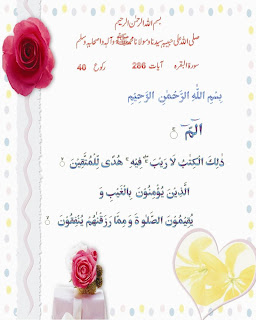 بسم اللہ الرحمن الرحیم
صلی اللہ علی حبیبہ سیدنا ومولانا محمد ﷺ وآلہ واصحابہ وسلم
سورۃ البقرہ آیات 286 رکوع 40
بِسْمِ اللّٰهِ الرَّحْمٰنِ الرَّحِيْمِ
الٓمّٓ ۚ
ذٰلِكَ الْكِتٰبُ لَا رَيْبَ ۛۖ فِيْهِ ۛۚ هُدًى لِّلْمُتَّقِيْنَ ۙ
الَّذِيْنَ يُؤْمِنُوْنَ بِالْغَيْبِ وَ
يُقِيْمُوْنَ الصَّلٰوةَ وَ مِمَّا رَزَقْنٰهُمْ يُنْفِقُوْنَ ۙ